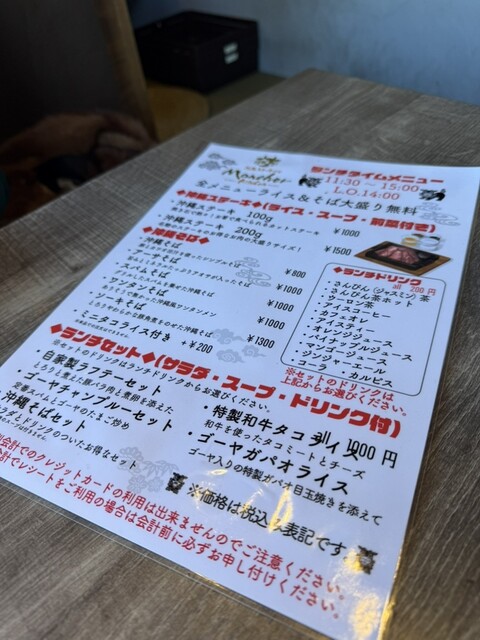 ランチタイムメニュー
11:30 ～ 15:00
L.O.14:00
全メニューライス＆そば大盛り無料
◆沖縄ステーキ◆(ライス・スープ・前菜付き)
・沖縄ステーキ 100g ¥1000
・沖縄ステーキ 200g ¥1500
◆沖縄そば◆
・沖縄そば ¥800
・アーサそば ¥1000
・スペムそば ¥1000
・ケンタンそば ¥1000
・ソーキそば ¥1300
・ミニタコライス付き +¥200
◆ランチドリンク
all 200円
・さんぴん（ジャスミン）茶
・さんぴん茶ホット
・ウーロン茶
・アイスコーヒー
・カフェオレ
・アイスティー
・オレンジジュース
・パイナップルジュース
・マンゴージュース
・ジンジャーエール
・コーラ ・カルピス
※セットのドリンクは
上記からお選びください。
◆ランチセット◆(サラダ・スープ・ドリンク付)
※セットのドリンクはランチドリンクからお選びください。
・自家製ラフテーセット
・ゴーヤチャンプルーセット
定番スパムとゴーヤのたまご炒め
沖縄そばセット
ドリンクのついたお得なセット
・特製和牛タコライス
和牛を使ったタコミートとチーズ
・ゴーヤガパオライス
ゴーヤ入りの特製ガパオ目玉焼きを添えて
※価格は税込み表記です
会計でのクレジットカードの利用は出来ませんのでご注意ください。
計でレシートをご利用の場合は会計前に必ずお申し付けください。